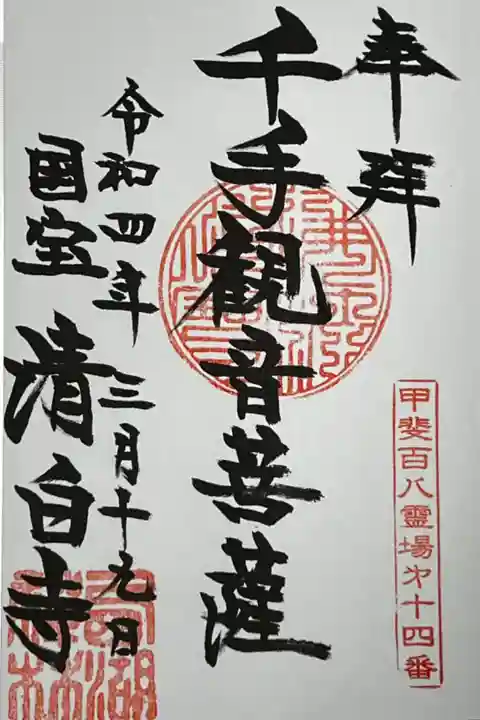 奉拝
甲斐百八霊場第十四番
千手観音菩薩
令和四年三月十九日
国宝 清白寺